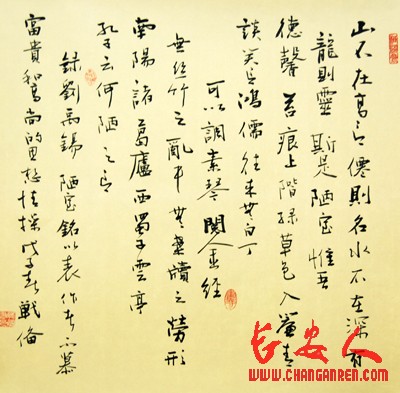 山不在高有僊則名水不在深有
龍則靈 斯是陋室 惟吾
德馨 苔痕上階緑草色入簾青
談笑有鴻儒往来無白丁
可以調素琴 閱金經
無絲竹之亂耳無案牘之勞形
南陽諸葛廬西蜀子雲亭
孔子云何陋之有
録劉禹錫陋室銘以表作者不慕
富貴和高尚的思想情操戊子春戰備
长安人
WWW.CHANGANREN.COM